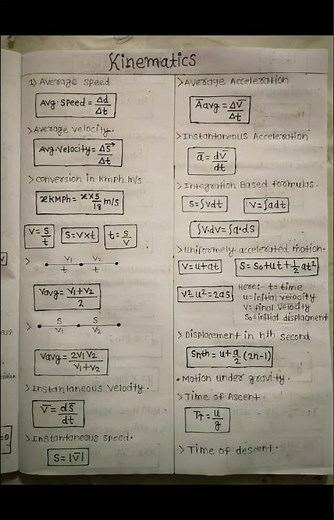 Kinematics
1) Average speed
Avg. speed = Δd/Δt
> Average velocity.
Avg. velocity = Δs⃗/Δt
> conversion in kmph m/s
x KMPh = x × 5/18 m/s
v = s/t
s = v × t
t = s/v
>
v₁ v₂
t t
Vavg = V₁+V₂/2
>
s s
v₁ v₂
Vavg = 2V₁V₂/V₁+V₂
> Instantaneous velocity.
V̄ = ds̄/dt
> Instantaneous speed.
S = |V̄|
> Average Acceleration
Āavg = ΔV̄/Δt
> Instantaneous Acceleration
ā = dv̄/dt
> Integration Based formulas.
S = ∫vdt
V = ∫adt
∫v.dv = ∫a.ds
> Uniformely accelerated motion.
V = u+at
S = S₀+ut+½at²
V²-u² = 2as
Here:- t = time
u = initial velocity
v = final velocity
S₀ = initial displacment
> Displacement in nᵗʰ second
Snth = u+a/2 (2n-1)
• Motion under gravity.
> Time of Ascent.
T↑ = u/g
> Time of descent.